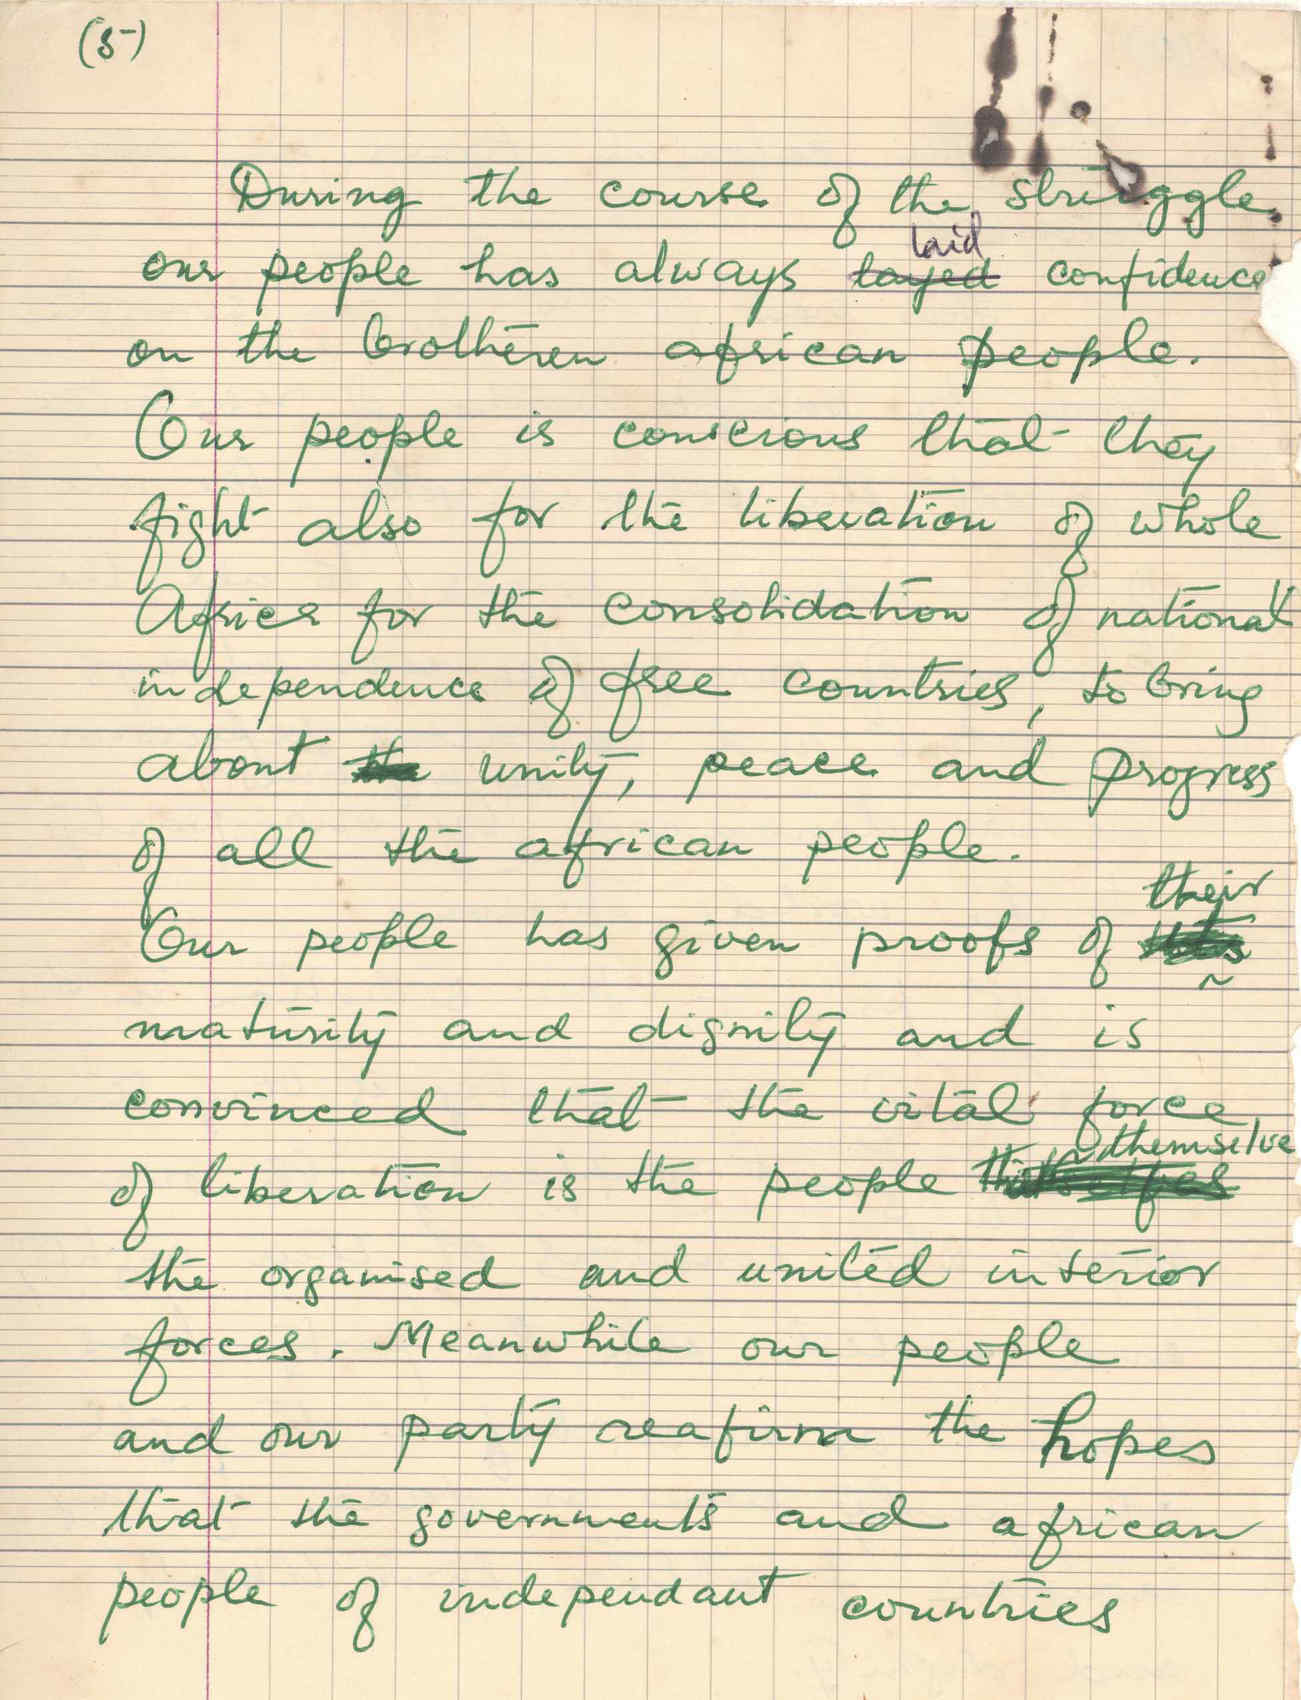 (5-)
During the course of the struggle,
our people has always layed laid confidence
on the brotheren african people.
Our people is conscious that they
fight also for the liberation of whole
Africa for the consolidation of national
independence of free countries, to bring
about the unity, peace and progress
of all the african people.
Our people has given proofs of their
maturity and dignity and is
convinced that the vital force
of liberation is the people themselve
the organised and united interior
forces. Meanwhile our people
and our party reafirm the hopes
that the governments and african
people of independant countries